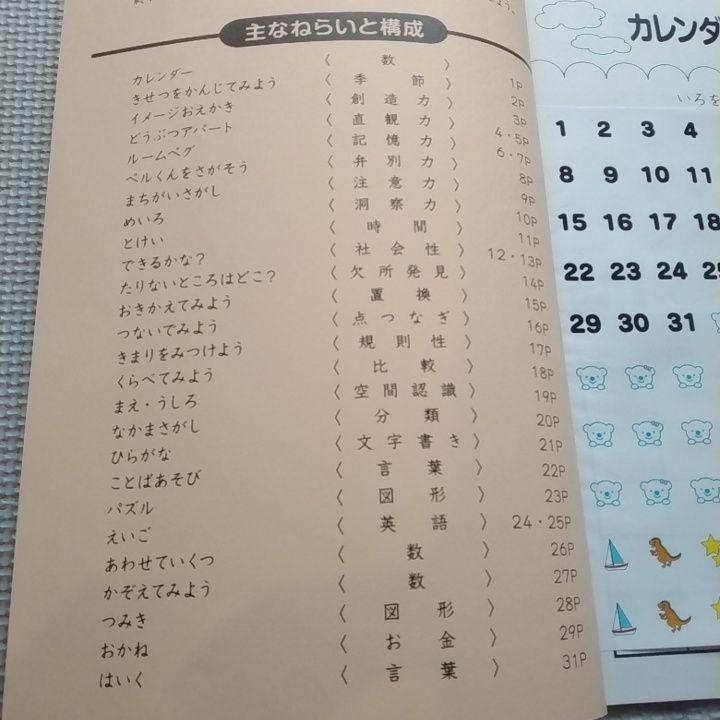 主なねらいと構成
カレンダー 〈 数 〉 1P
きせつをかんじてみよう 〈 季節 〉 2P
イメージおえかき 〈 創造力 〉 3P
どうぶつアパート 〈 直観力 〉 4・5P
ルームペグ 〈 記憶力 〉 6・7P
ベルくんをさがそう 〈 弁別力 〉 8P
まちがいさがし 〈 注意力 〉 9P
めいろ 〈 洞察力 〉 10P
とけい 〈 時間 〉 11P
できるかな? 〈 社会性 〉 12・13P
たりないところはどこ? 〈 欠所発見 〉 14P
おきかえてみよう 〈 置換 〉 15P
つないでみよう 〈 点つなぎ 〉 16P
きまりをみつけよう 〈 規則性 〉 17P
くらべてみよう 〈 比較 〉 18P
まえ・うしろ 〈 空間認識 〉 19P
なかまさがし 〈 分類 〉 20P
ひらがな 〈 文字書き 〉 21P
ことばあそび 〈 言葉 〉 22P
パズル 〈 図形 〉 23P
えいご 〈 英語 〉 24・25P
あわせていくつ 〈 数 〉 26P
かぞえてみよう 〈 数 〉 27P
つみき 〈 図形 〉 28P
おかね 〈 お金 〉 29P
はいく 〈 言葉 〉 31P
カレンダ
いろを
1 2 3 4
8 9 10 11
15 16 17 18
22 23 24 25
29 30 31